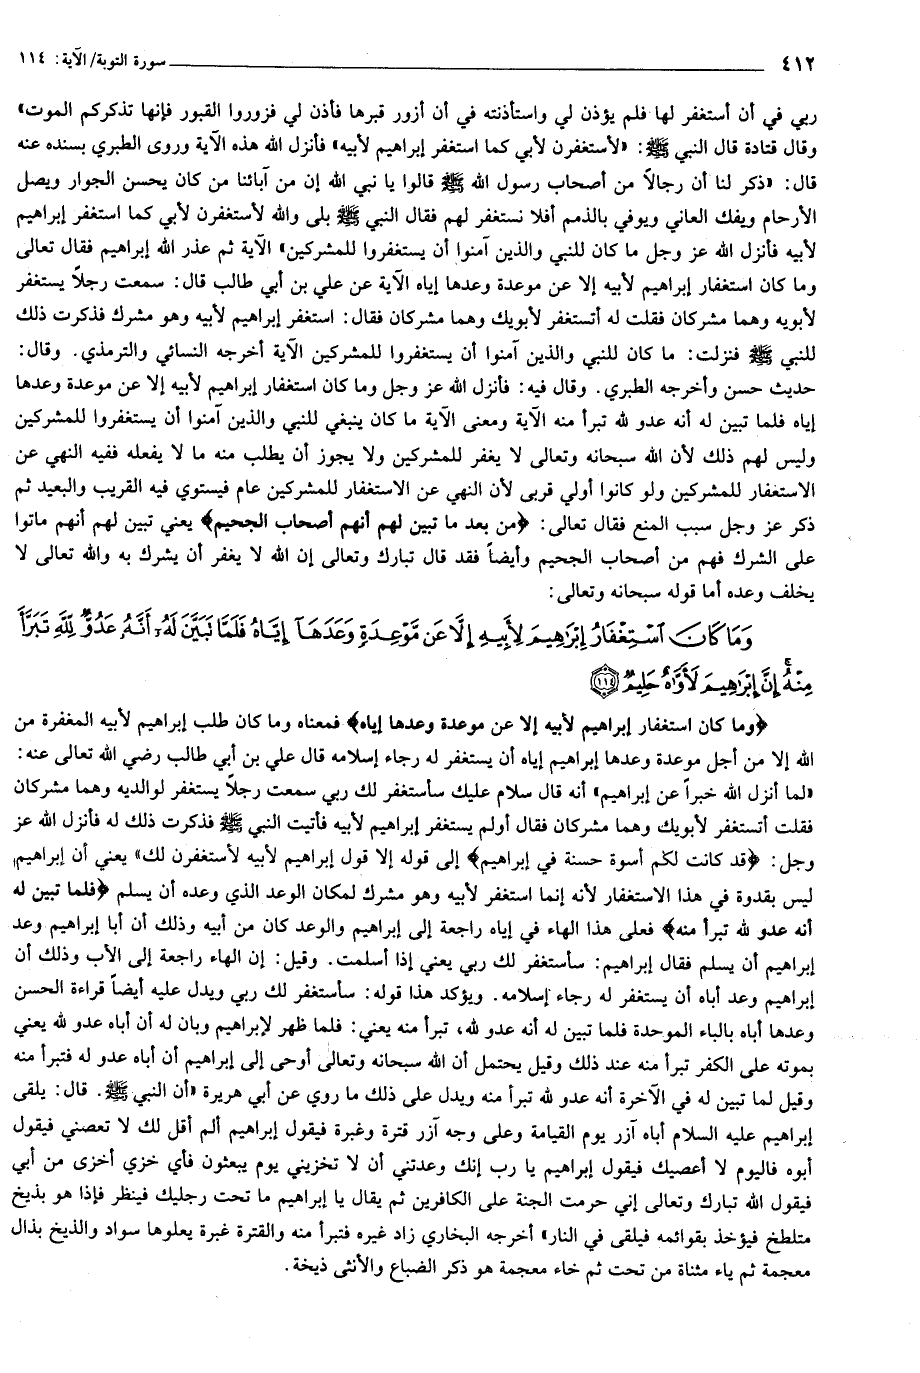 ٤١٢ سورة التوبة/ الآية: ١١٤
ربي في أن أستغفر لها فلم يؤذن لي واستأذنته في أن أزور قبرها فأذن لي فزوروا القبور فإنها تذكركم الموت»
وقال قتادة قال النبي ﷺ: «لأستغفرن لأبي كما استغفر إبراهيم لأبيه» فأنزل الله هذه الآية وروى الطبري بسنده عنه
قال: «ذكر لنا أن رجالاً من أصحاب رسول الله ﷺ قالوا يا نبي الله إن من آبائنا من كان يحسن الجوار ويصل
الأرحام ويفك العاني ويوفي بالذمم أفلا نستغفر لهم فقال النبي ﷺ بلى والله لأستغفرن لأبي كما استغفر إبراهيم
لأبيه فأنزل الله عز وجل ما كان للنبي والذين آمنوا أن يستغفروا للمشركين» الآية ثم عذر الله إبراهيم فقال تعالى
وما كان استغفار إبراهيم لأبيه إلا عن موعدة وعدها إياه الآية عن علي بن أبي طالب قال: سمعت رجلاً يستغفر
لأبويه وهما مشركان فقلت له أتستغفر لأبويك وهما مشركان فقال: استغفر إبراهيم لأبيه وهو مشرك فذكرت ذلك
للنبي ﷺ فنزلت: ما كان للنبي والذين آمنوا أن يستغفروا للمشركين الآية أخرجه النسائي والترمذي. وقال:
حديث حسن وأخرجه الطبري. وقال فيه: فأنزل الله عز وجل وما كان استغفار إبراهيم لأبيه إلا عن موعدة وعدها
إياه فلما تبين له أنه عدو لله تبرأ منه الآية ومعنى الآية ما كان ينبغي للنبي والذين آمنوا أن يستغفروا للمشركين
وليس لهم ذلك لأن الله سبحانه وتعالى لا يغفر للمشركين ولا يجوز أن يطلب منه ما لا يفعله ففيه النهي عن
الاستغفار للمشركين ولو كانوا أولي قربى لأن النهي عن الاستغفار للمشركين عام فيستوي فيه القريب والبعيد ثم
ذكر عز وجل سبب المنع فقال تعالى: ﴿من بعد ما تبين لهم أنهم أصحاب الجحيم﴾ يعني تبين لهم أنهم ماتوا
على الشرك فهم من أصحاب الجحيم وأيضاً فقد قال تبارك وتعالى إن الله لا يغفر أن يشرك به والله تعالى لا
يخلف وعده أما قوله سبحانه وتعالى:
وَمَا كَانَ ٱسْتِغْفَارُ إِبْرَٰهِيمَ لِأَبِيهِ إِلَّا عَن مَّوْعِدَةٍ وَعَدَهَآ إِيَّاهُ فَلَمَّا تَبَيَّنَ لَهُۥٓ أَنَّهُۥ عَدُوٌّ لِّلَّهِ تَبَرَّأَ
مِنْهُ ۚ إِنَّ إِبْرَٰهِيمَ لَأَوَّٰهٌ حَلِيمٌ ١١٤
﴿وما كان استغفار إبراهيم لأبيه إلا عن موعدة وعدها إياه﴾ فمعناه وما كان طلب إبراهيم لأبيه المغفرة من
الله إلا من أجل موعدة وعدها إبراهيم إياه أن يستغفر له رجاء إسلامه قال علي بن أبي طالب رضي الله تعالى عنه:
«لما أنزل الله خبراً عن إبراهيم» أنه قال سلام عليك سأستغفر لك ربي سمعت رجلاً يستغفر لوالديه وهما مشركان
فقلت أتستغفر لأبويك وهما مشركان فقال أولم يستغفر إبراهيم لأبيه فأتيت النبي ﷺ فذكرت ذلك له فأنزل الله عز
وجل: ﴿قد كانت لكم أسوة حسنة في إبراهيم﴾ إلى قوله إلا قول إبراهيم لأبيه لأستغفرن لك» يعني أن إبراهيم
ليس بقدوة في هذا الاستغفار لأنه إنما استغفر لأبيه وهو مشرك لمكان الوعد الذي وعده أن يسلم ﴿فلما تبين له
أنه عدو لله تبرأ منه﴾ فعلى هذا الهاء في إياه راجعة إلى إبراهيم والوعد كان من أبيه وذلك أن أبا إبراهيم وعد
إبراهيم أن يسلم فقال إبراهيم: سأستغفر لك ربي يعني إذا أسلمت. وقيل: إن الهاء راجعة إلى الأب وذلك أن
إبراهيم وعد أباه أن يستغفر له رجاء إسلامه. ويؤكد هذا قوله: سأستغفر لك ربي ويدل عليه أيضاً قراءة الحسن
وعدها أباه بالباء الموحدة فلما تبين له أنه عدو لله، تبرأ منه يعني: فلما ظهر لإبراهيم وبان له أن أباه عدو لله يعني
بموته على الكفر تبرأ منه عند ذلك وقيل يحتمل أن الله سبحانه وتعالى أوحى إلى إبراهيم أن أباه عدو له فتبرأ منه
وقيل لما تبين له في الآخرة أنه عدو لله تبرأ منه ويدل على ذلك ما روي عن أبي هريرة «أن النبي ﷺ. قال: يلقى
إبراهيم عليه السلام أباه آزر يوم القيامة وعلى وجه آزر قترة وغبرة فيقول إبراهيم ألم أقل لك لا تعصني فيقول
أبوه فاليوم لا أعصيك فيقول إبراهيم يا رب إنك وعدتني أن لا تخزيني يوم يبعثون فأي خزي أخزى من أبي
فيقول الله تبارك وتعالى إني حرمت الجنة على الكافرين ثم يقال يا إبراهيم ما تحت رجليك فينظر فإذا هو بذيخ
متلطخ فيؤخذ بقوائمه فيلقى في النار» أخرجه البخاري زاد غيره فتبرأ منه والقترة غبرة يعلوها سواد والذيخ بذال
معجمة ثم ياء مثناة من تحت ثم خاء معجمة هو ذكر الضباع والأنثى ذيخة.